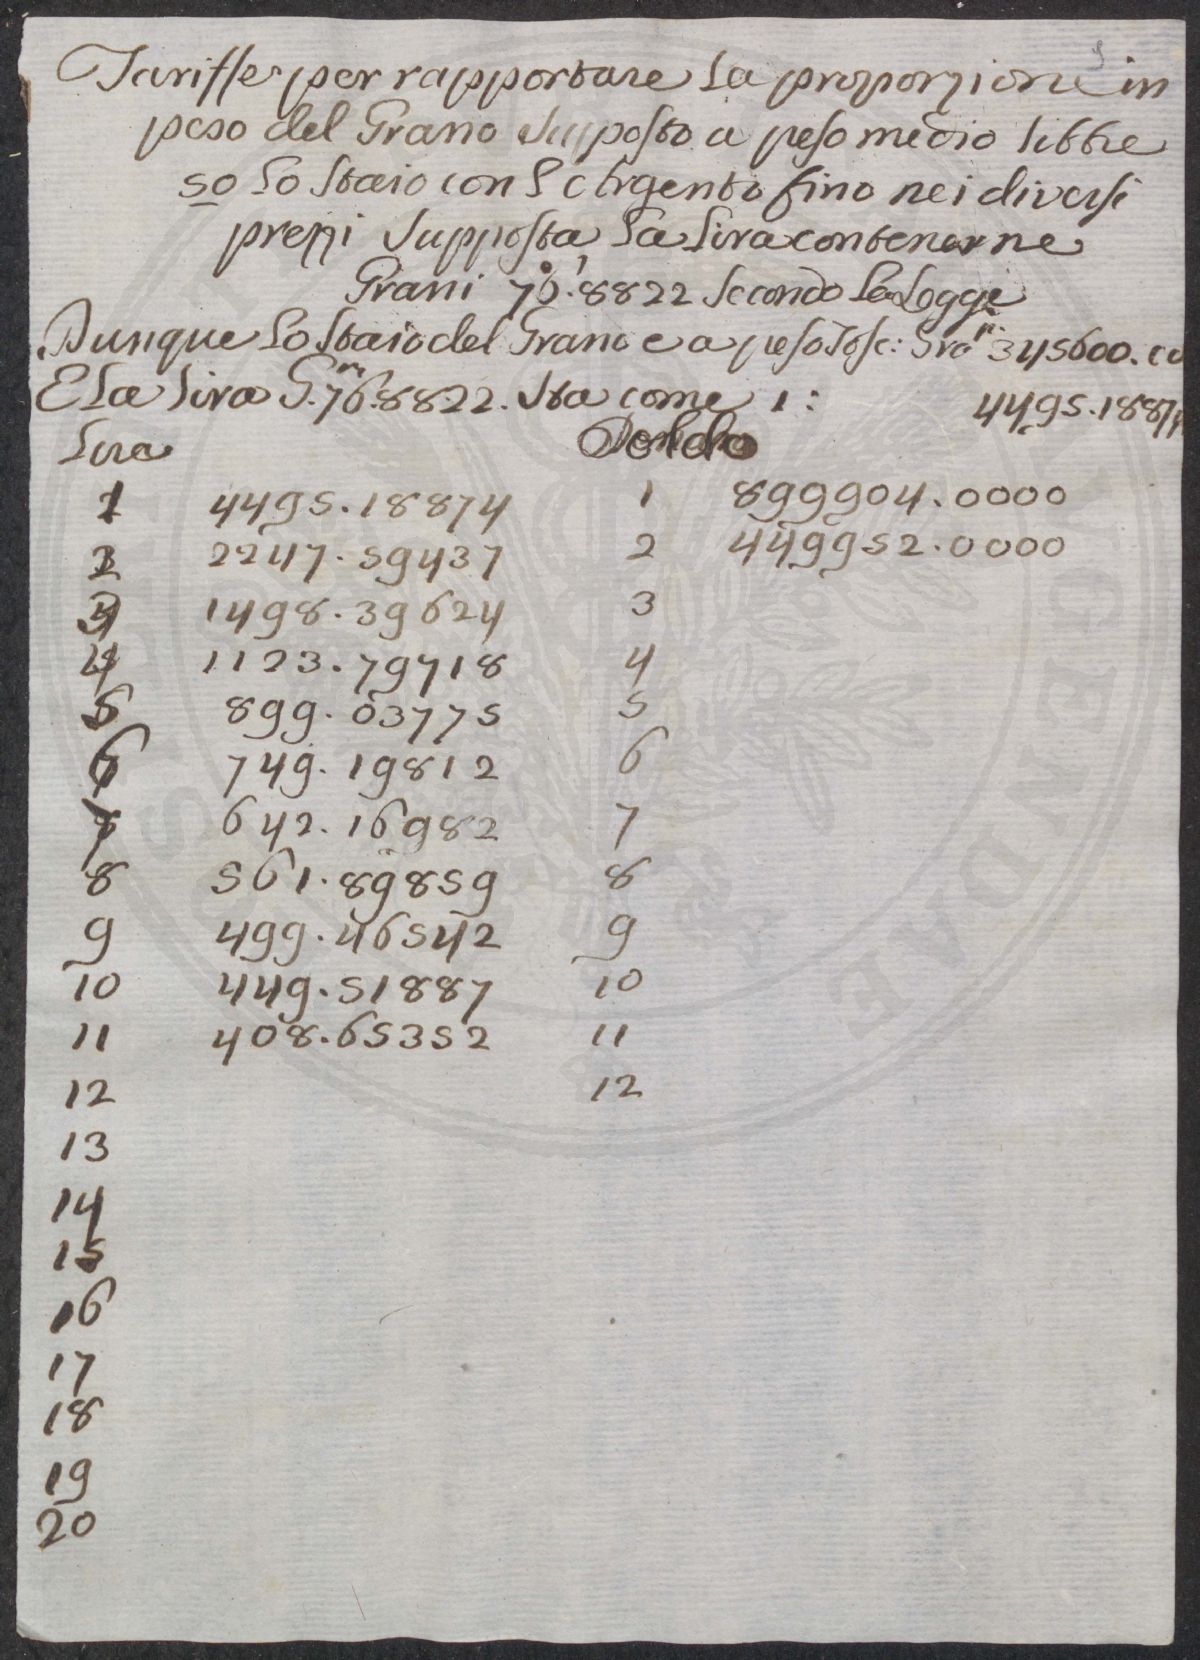 Tariffe per rapportare la proporzione in
peso del Grano supposto a peso medio libbre
50 lo staio con l'Argento fino nei diversi
prezzi supposta la lira contenerne
Grani 76.8822 secondo la Legge
Dunque lo staio del Grano e a peso Tosc: Gra 345600.
E la lira G. 76.8822. sta come 1: 4495.1887
Lira
1 4495.18874 1 899904.0000
2 2247.59437 2 449952.0000
3 1498.39624 3
4 1123.79718 4
5 899.03775 5
6 749.19812 6
7 642.16982 7
8 561.89859 8
9 499.46542 9
10 449.51887 10
11 408.65352 11
12 12
13
14
15
16
17
18
19
20